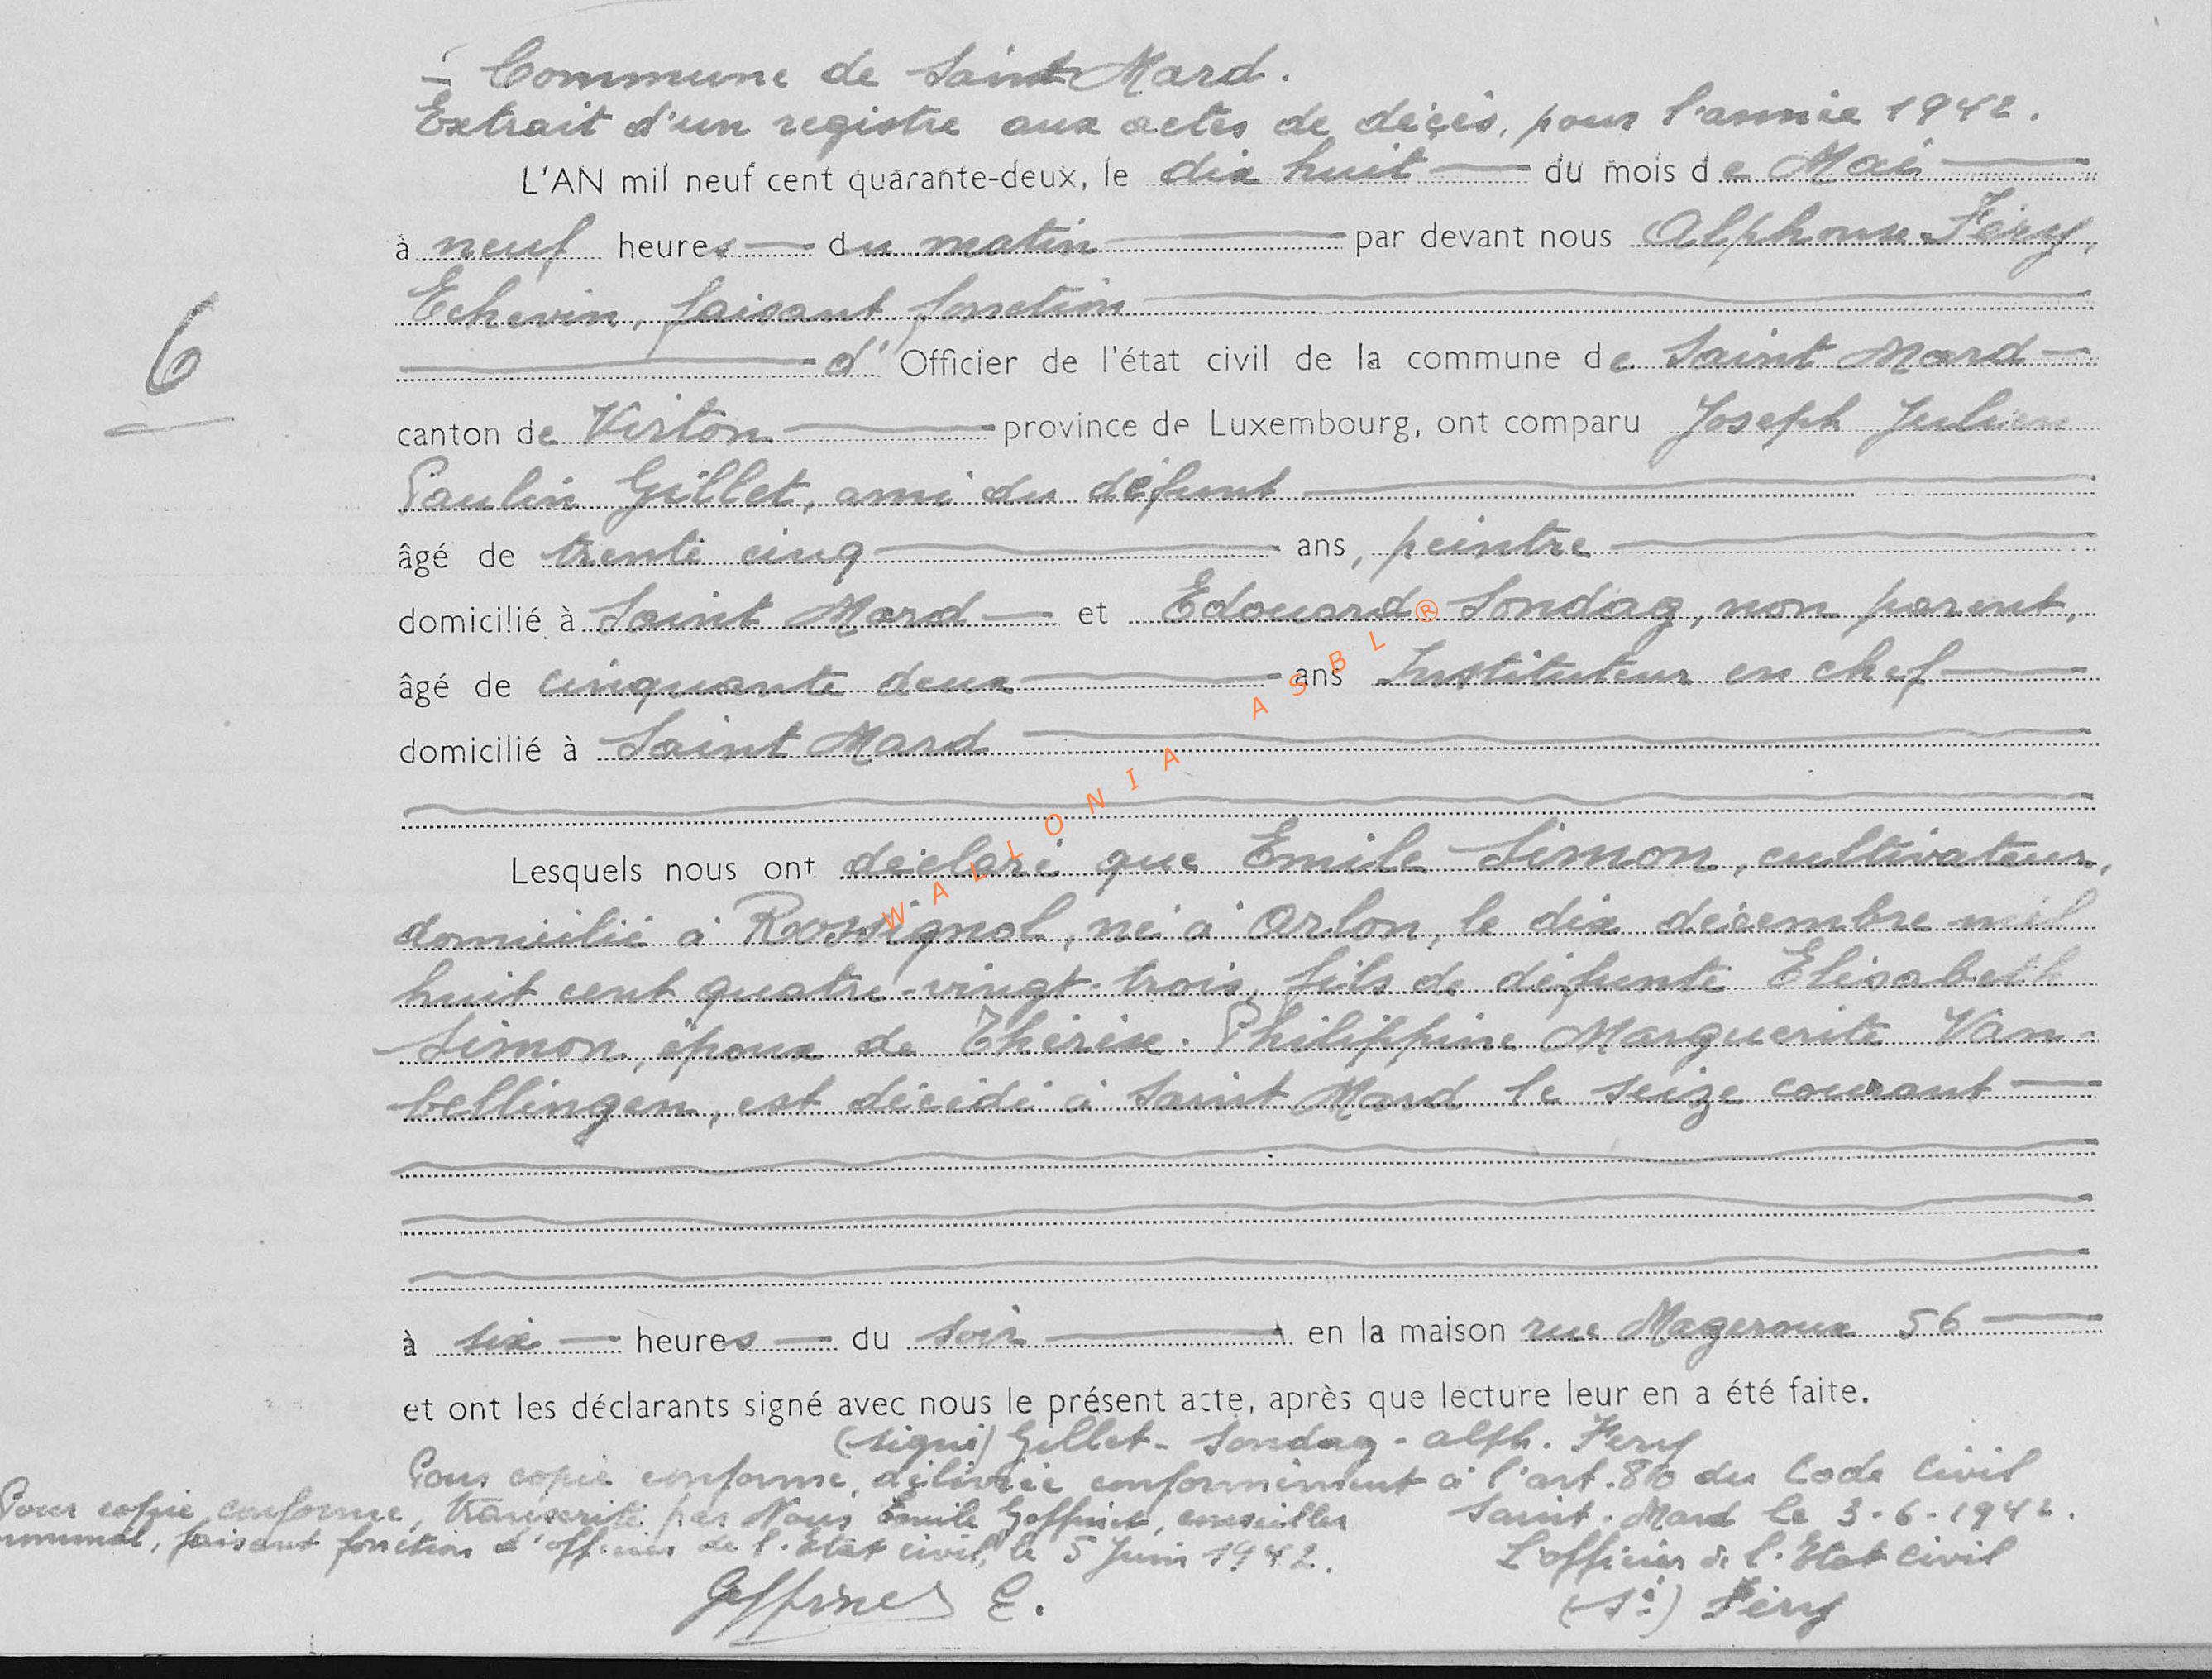 Commune de Saint Mard.
Extrait d'un registre aux actes de décès, pour l'année 1942.
L'AN mil neuf cent quarante-deux, le dix huit du mois de Mai
à neuf heures du matin par devant nous Alphonse Féry,
Echevin, faisant fonction
6
d' Officier de l'état civil de la commune de Saint Mard
canton de Virton province de Luxembourg, ont comparu Joseph Julien
Paulin Gillet, ami du défunt
âgé de trente cinq ans, peintre
domicilié à Saint Mard et Edouard Sondag, non parent,
âgé de cinquante deux ans Instituteur en chef
domicilié à Saint Mard
WALLONIA ASBL®
Lesquels nous ont déclaré que Emile Simon, cultivateur,
domicilié à Rossignol, né à Arlon, le dix décembre mil
huit cent quatre-vingt-trois, fils de défunte Elisabeth
Simon, époux de Thérèse-Philippine Marguerite Van-
bellingen, est décédé à Saint Mard le seize courant
à six heures du soir en la maison rue Mageroux 56
et ont les déclarants signé avec nous le présent acte, après que lecture leur en a été faite.
(signé) Gillet - Sondag - Alph. Fery
Pour copie conforme, délivrée conformément à l'art. 80 du Code Civil
Saint-Mard le 3-6-1942.
L'officier de l'Etat Civil
(Sé) Féry
Pour copie conforme, transcrite par Nous Emile Goffinet, conseiller
communal, faisant fonction d'officier de l'Etat civil, le 5 Juin 1942.
Goffinet E.